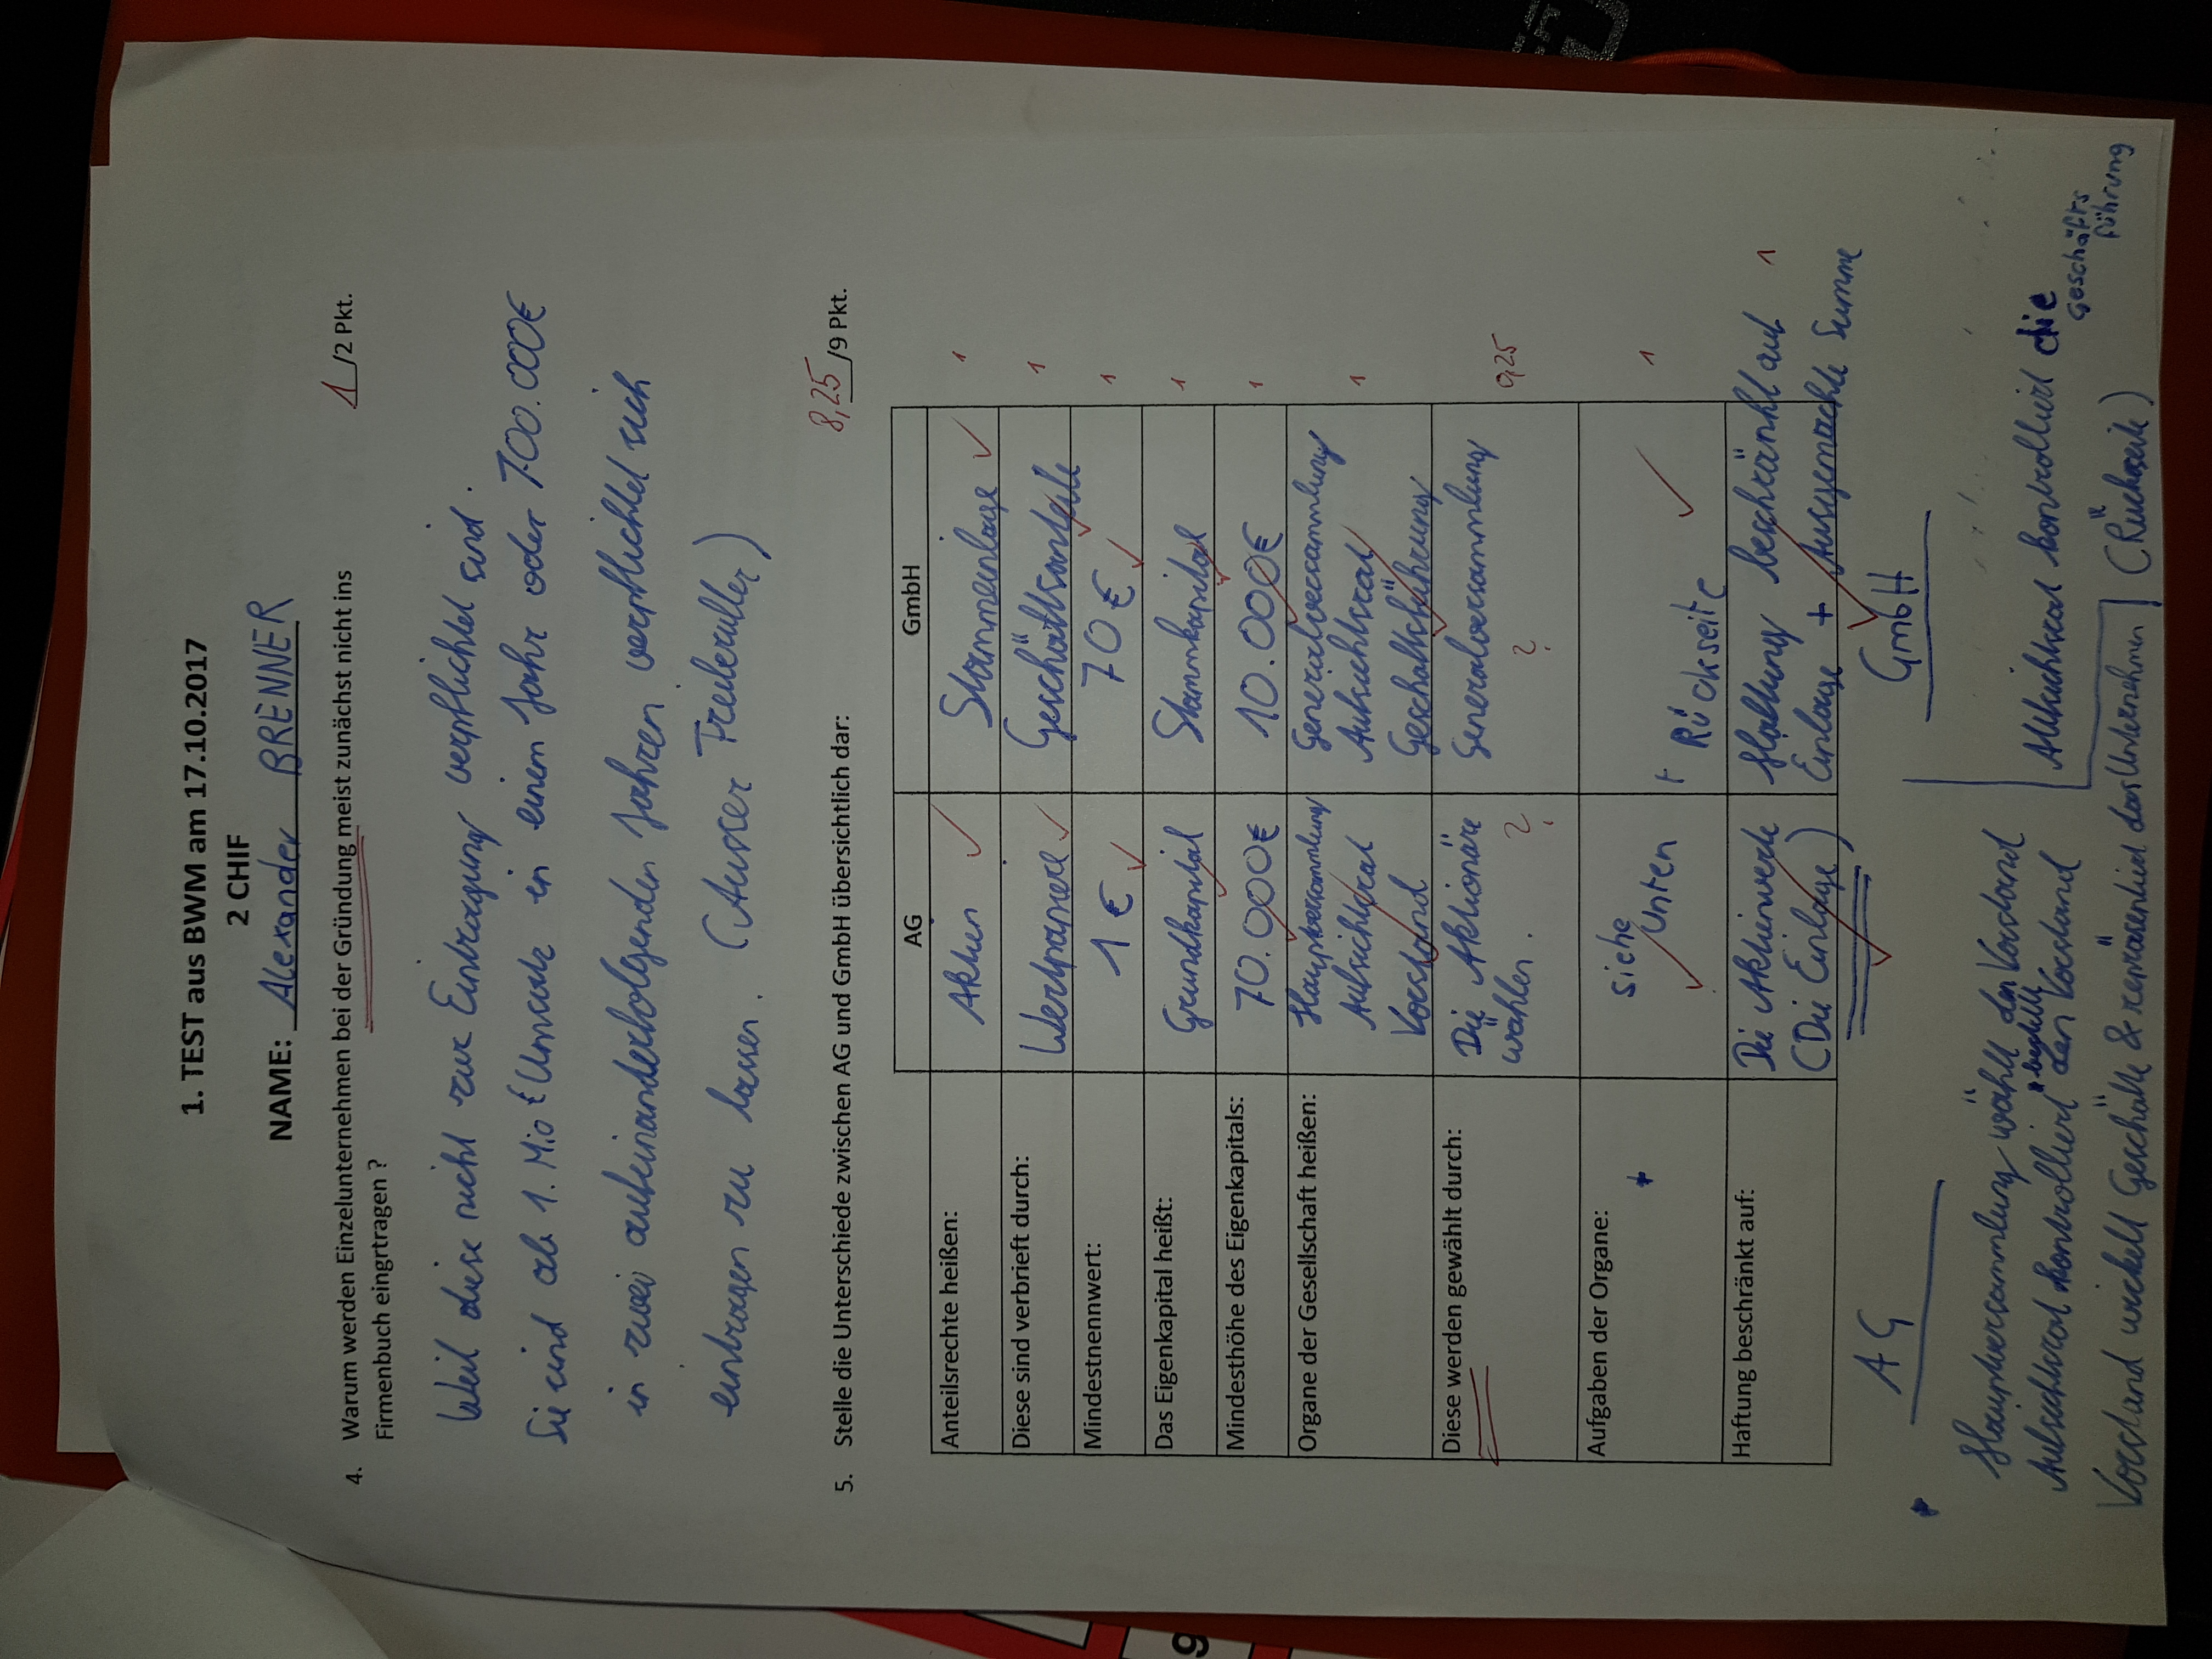 1. TEST aus BWM am 17.10.2017
2 CHIF
NAME: Alexander BRENNER
4. Warum werden Einzelunternehmen bei der Gründung meist zunächst nicht ins 1 /2 Pkt.
Firmenbuch eingrtragen ?
Weil diese nicht zur Eintragung verpflichtet sind.
Sie sind ab 1. Mio € Umsatz in einem Jahr oder 700.000€
in zwei aufeinanderfolgenden Jahren verpflichtet sich
eintragen zu lassen. (Ausser Freiberufler)
5. Stelle die Unterschiede zwischen AG und GmbH übersichtlich dar: 8,25 /9 Pkt.
AG GmbH
Anteilsrechte heißen: Aktien ✓ Stammeinlage ✓ 1
Diese sind verbrieft durch: Wertpapiere ✓ Geschäftsanteile ✓ 1
Mindestnennwert: 1 € ✓ 70 € ✓ 1
Das Eigenkapital heißt: Grundkapital ✓ Stammkapital ✓ 1
Mindesthöhe des Eigenkapitals: 70.000€ ✓ 10.000€ ✓ 1
Organe der Gesellschaft heißen: Hauptversammlung Generalversammlung
Aufsichtsrat Aufsichtsrat 1
Vorstand ✓ Geschäftsführung ✓
Diese werden gewählt durch: Die Aktionäre Generalversammlung
wählen. ? ? 0,25
Aufgaben der Organe: siehe
* Unten ✓ + Rückseite ✓ 1
Haftung beschränkt auf: Die Aktienwerte Haftung beschränkt auf 1
(Die Einlage) ✓ Einlage + Ausgemachte Summe ✓
AG GmbH
* Hauptversammlung wählt den Vorstand
Aufsichtsrat kontrolliert * bestellt den Vorstand
Vorstand wickelt Geschäfte & repräsentiert das Unternehmen
Aufsichtsrat kontrolliert die
Geschäfts
führung
(Rückseite)
9